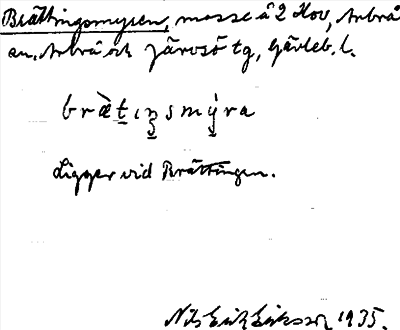 Brättingsmyren, mosse å 2 Hov, Arbrå
sn, Arbrå och Järvsö tg, Gävleb. l.
brætıŋsmýra
Ligger vid Brättingen.
Nils Erik Eriksson 1935.